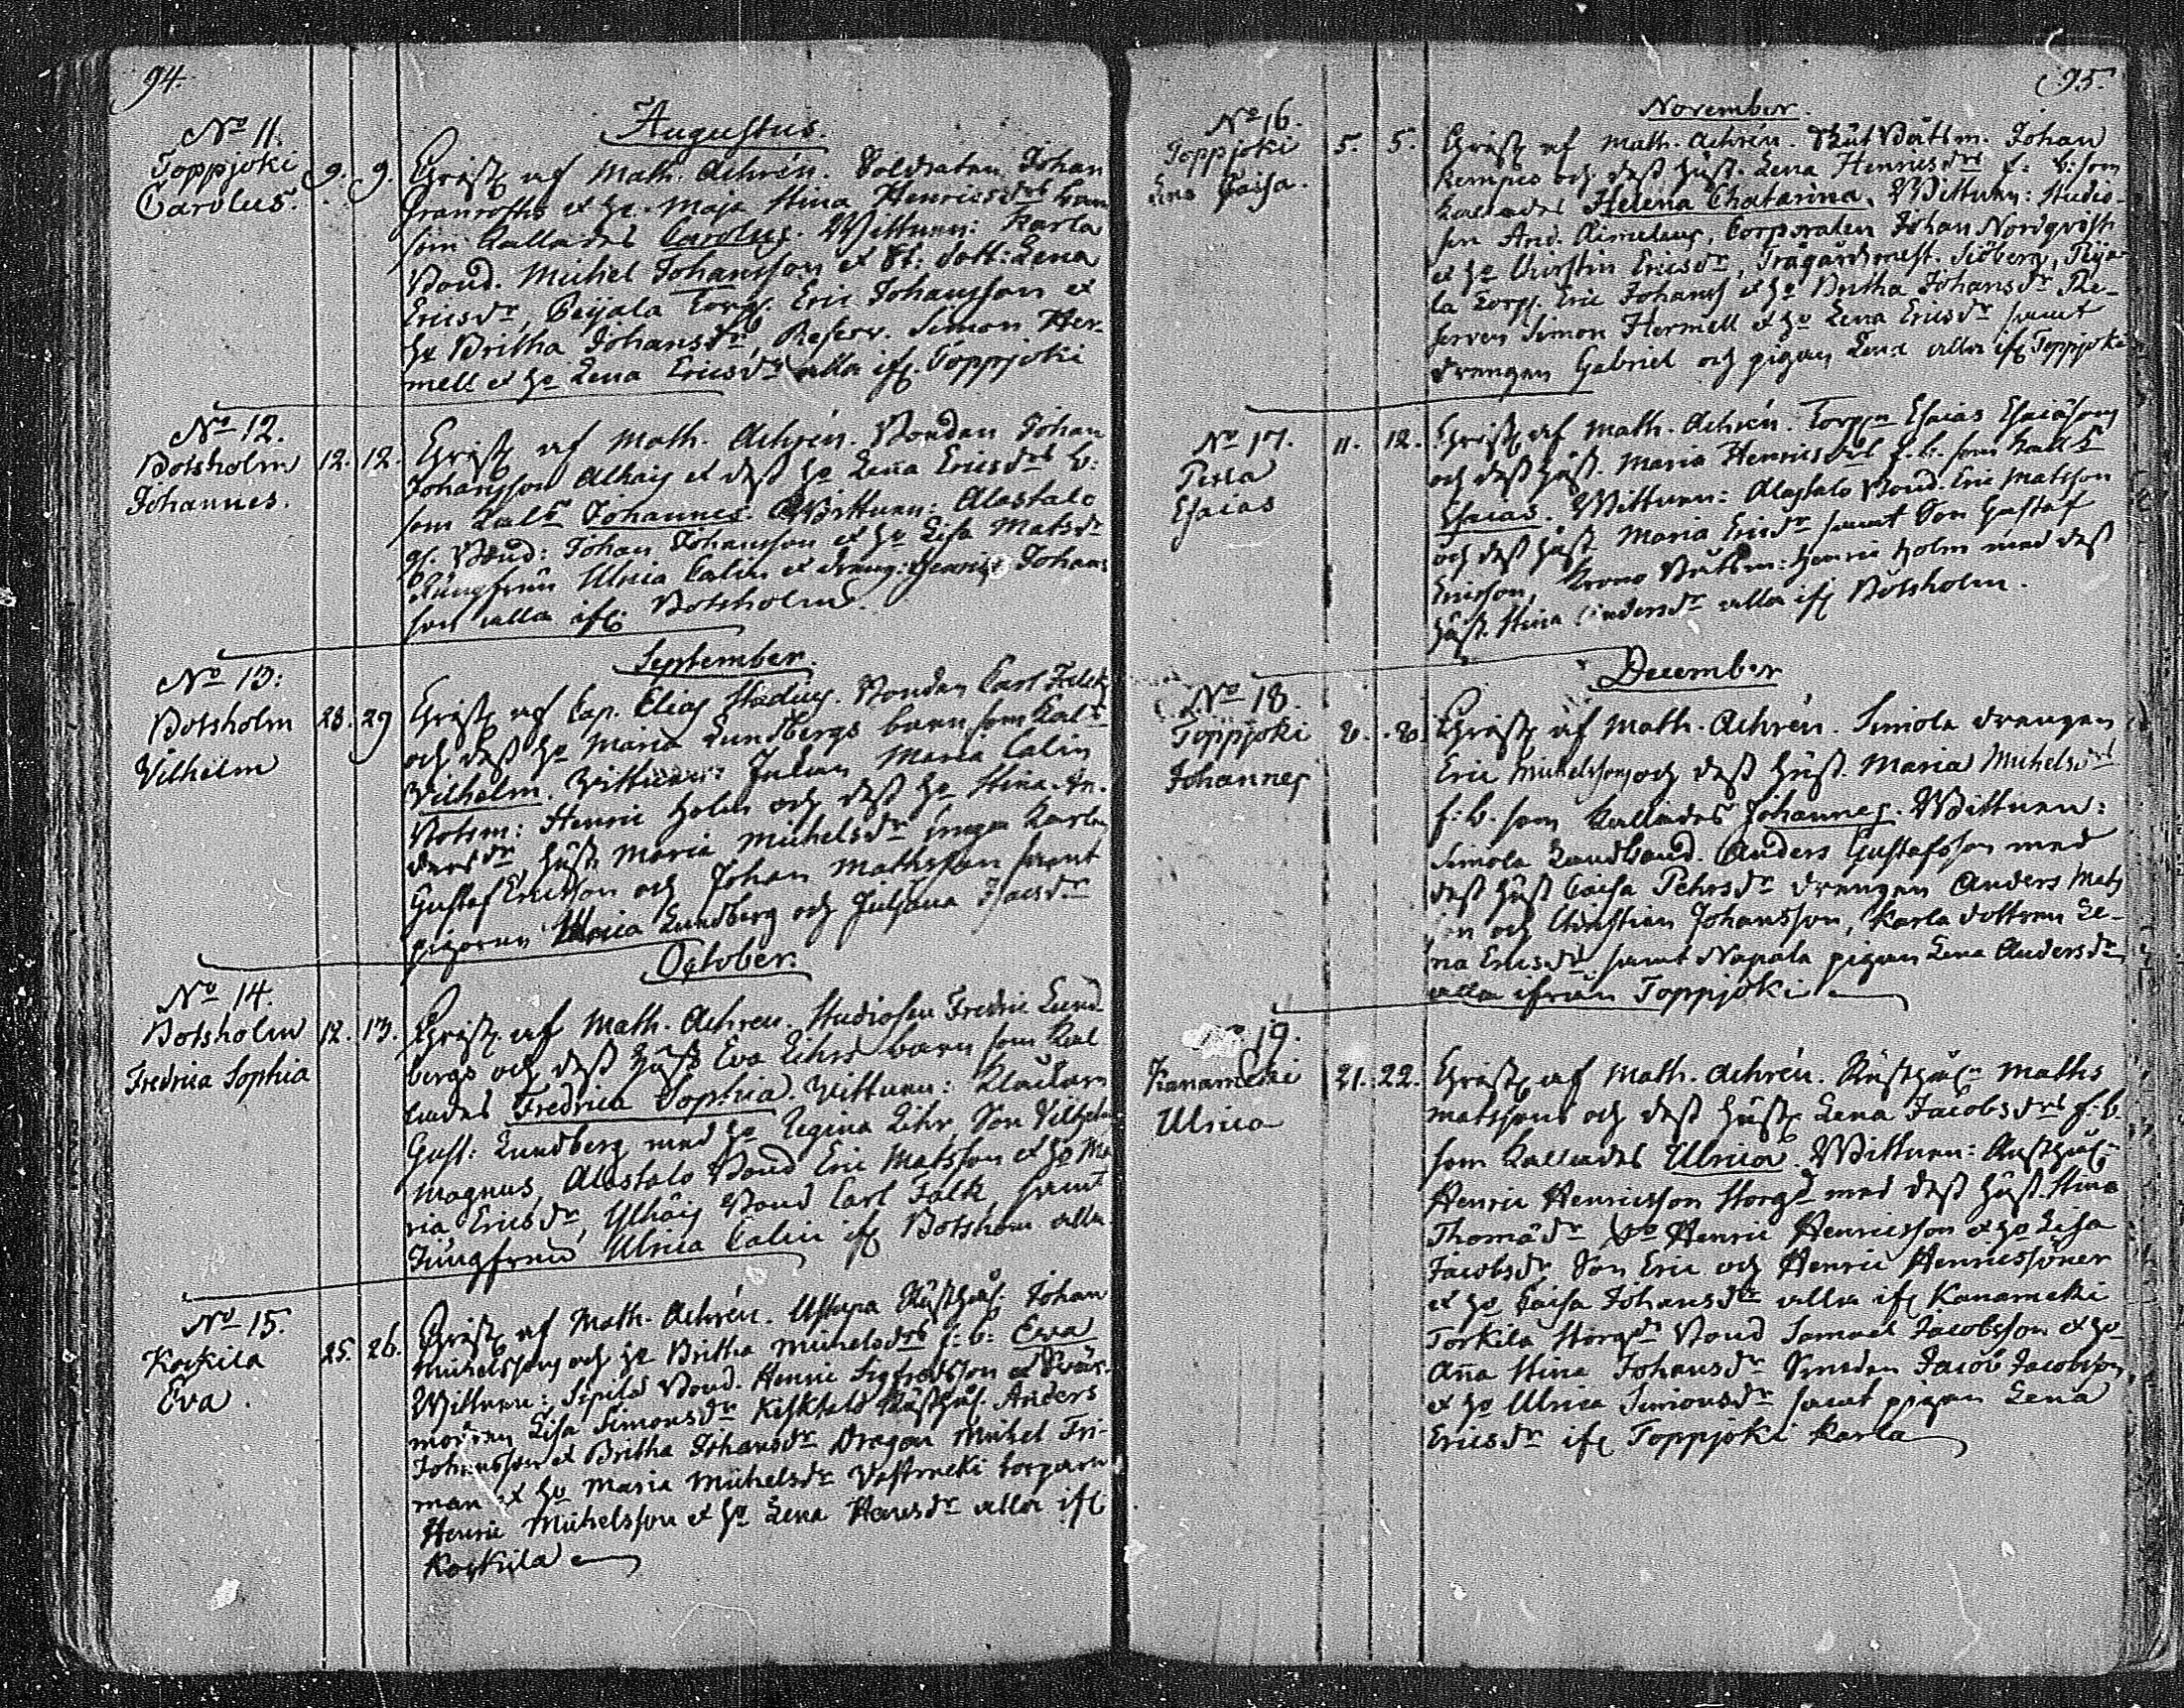 94.
Augustus.
No 11.
Toppjoki
Carolus.
9. 9.
Christ. af Math. Achrén. Soldaten Johan
Granroths et h. Maja Stina Henricsdrs barn
som kallades Carolus. Wittnen: Karla
Bond. Michel Johansson et St: dott: Lena
Ericsdr, Peijala Torp. Eric Johansson et
h. Britha Johansdr, Reserv. Simon Her-
mell et ho Lena Ericsdr alla ifr. Toppjoki
No 12.
Botsholm
Johannes.
12. 12.
Christ af Math. Achrén. Bonden Johan
Johansson Alhäis et dess ho Lena Ericsdrs b:
som kals Johannes. Wittnen: Alastalo
Bond: Johan Johansson et ho Lisa Matsdr
Jungfrun Ulrica Calin et dräng: Henric Johans
son alla ifr. Botsholm.
September.
No 13:
Botsholm
Vilhelm
28. 29
Christ af Cap. Elias Stadius. Bonden Carl Falck
och dess ho Maria Lundbergs barn som kals
Vilhelm. Vittnen: Maria Calin
Botsm: Henric Holm och dess ho Stina An-
dersdr, hust Maria Michelsdr unga Karlar
Gustaf Ericsson och Johan Mathsson samt
pigorna Ulrica Lundberg och Juliana Isacsdr
October.
No 14.
Botsholm
Fredrica Sophia
12. 13.
Christ. af Math. Achren. Studiosen Fredric Lund-
bergs och dess hust Eva Lihrs barn som kal
lades Fredrica Sophia. Vittnen: Klackarn
Gust: Lundberg med ho Regina Lihr, Son Vilhelm
Magnus, Alastalo Bond Eric Matsson et ho Ma
ria Ericsdr, Ylhäis Bond Carl Falk, samt
Jungfrun Ulrica Calin ifr Botsholm alla
No 15.
Koskila
Eva.
25. 26.
Christ af Math. Achrén. Rusthål. Johan
Michelssons och ho Britha Michelsdrs f: b: Eva
Wittnen: Sipilä Bond. Henric Sigfredsson et Svär-
modren Lisa Simonsdr Rusthål. Anders
Johansson et Britha Johansdr Dragon Michel Fri-
man et ho Maria Michelsdr torparn
Henric Michelsson et ho Lena Hansdr alla ifr
Koskila
95.
November.
No 16.
Toppjoki
Lena Caisa.
5. 5.
Christ af Math. Achrén. Båtsm. Johan
Kempes och dess hust. Lena Henricsdrs f: b: som
kallades Helena Chatarina. Wittnen: Studio-
sen And. Aimelaus, Corporalen Johan Nordqvist
et ho Christin Ericsdr, Trägårdsmest. Siöberg, Peija-
la Torp. Eric Johanss et ho Britha Johansdr Re-
serven Simon Hermell et ho Lena Ericsdr samt
drengen Gabriel och pigan Lena alla ifr Toppjoki
No 17.
Esaias
11. 12.
Christ af Math. Achrén. Torpn Esaias Esaiäsons
och dess hust. Maria Henricsdrs f. b. som kalls
Esaias. Wittnen: Alastalo Bond. Eric Matsson
och dess hust. Maria Ericsdr samt Son Gustaf
Ericsson, Krono Båtsm: Henric Holm med dess
hust. Stina Andersdr alla ifr Botsholm.
December
No 18.
Toppjoki
Johannes
8. 8.
Christ af Math. Achrén. Simola drengen
Eric Michelssons och dess hust. Maria Michelsdrs
f: b. som kallades Johannes. Wittnen:
Simola Landbond. Anders Gustafsson med
dess hust Caisa Pehrsdr drengen Anders Mats
son och Christian Johansson, Karla dottren Le-
na Ericsdr samt Napala pigan Lena Andersdr
alla ifrån Toppjoki
19.
Kanameki
Ulrica
21. 22.
Christ af Math. Achrén. Rusthåln Maths
Matssons och dess hust Lena Jacobsdrs f: b.
som kallades Ulrica. Wittnen: Rusthåln
Henric Henricsson Storgd med dess hust. Stina
Thomädr do Henric Henricsson et ho Lisa
Jacobsdr Son Eric och Henric Henricssöner
et ho Caisa Johansdr alla ifr Kanameki
Torkila Storgdn Bond Samuel Jacobsson et ho
Aña Stina Johansdr Smeden Jacob Jacobsson
et ho Ulrica Simonsdr samt pigan Lena
Ericsdr ifr Toppjoki Karla